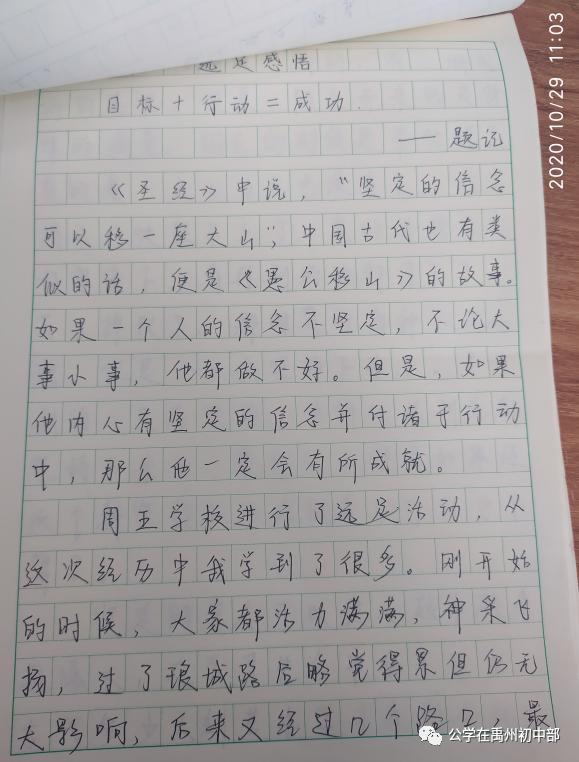 远足感悟
目标+行动=成功.
——题记
《圣经》中说,“坚定的信念
可以移一座大山”;中国古代也有类
似的话,便是《愚公移山》的故事。
如果一个人的信念不坚定,不论大
事小事,他都做不好。但是,如果
他内心有坚定的信念并付诸于行动
中,那么他一定会有所成就。
周五学校进行了远足活动,从
这次经历中我学到了很多。刚开始
的时候,大家都活力满满,神采飞
扬,过了琅城路后略觉得累但仍无
大影响,后来又经过几个路口,最
2020/10/29 11:03
公学在禹州初中部